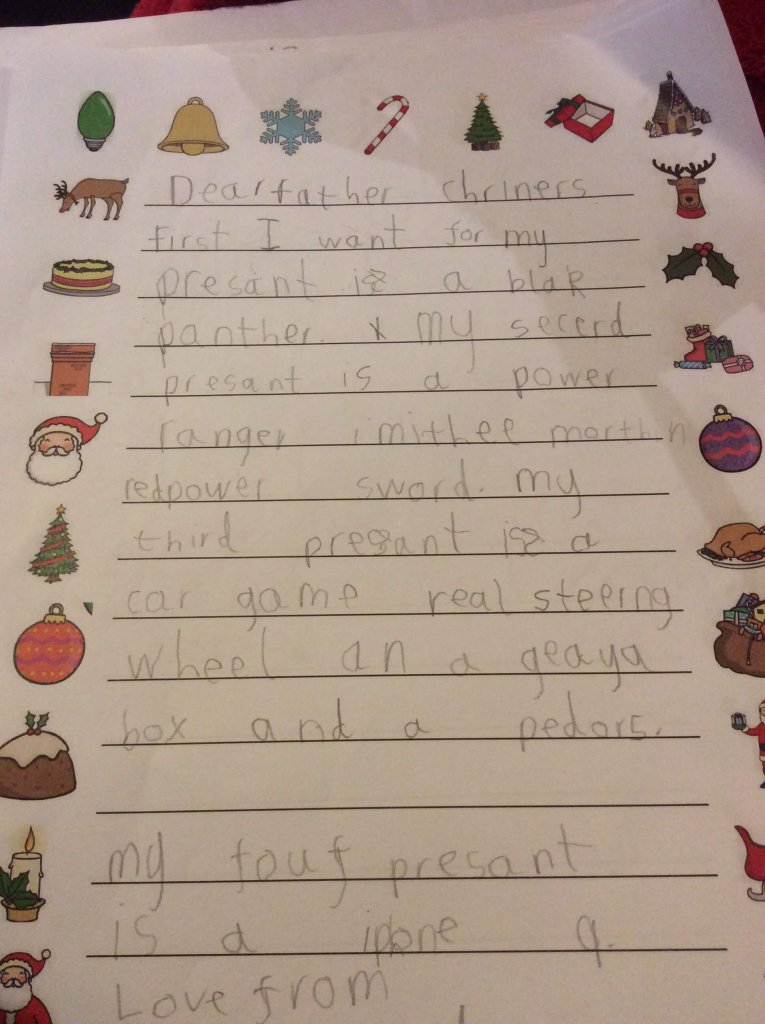 Dear father chriners
first I want for my
presant is a blak
panther. x my secerd
presant is a power
ranger mithee morthin
redpower sword. my
third presant is a
car game real steerng
wheel an a geaya
box and a pedors.
my fouf presant
is a ipone 9.
Love from